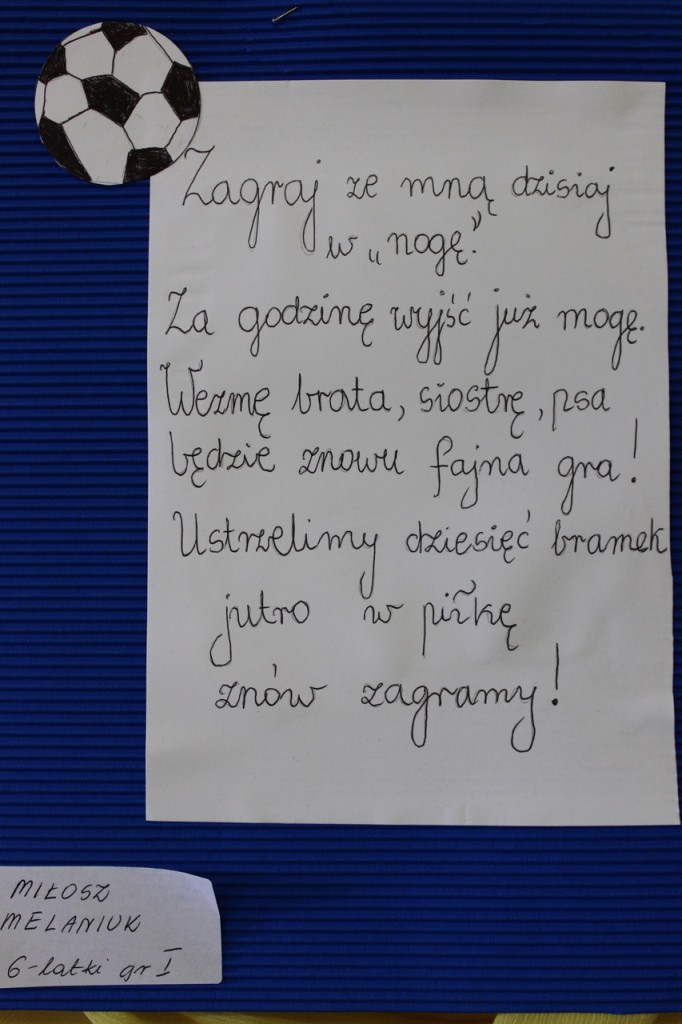 Zagraj ze mną dzisiaj
w „nogę.”
Za godzinę wyjść już mogę.
Wezmę brata, siostrę, psa
będzie znowu fajna gra!
Ustrzelimy dziesięć bramek
jutro w piłkę
znów zagramy!
MIŁOSZ
MELANIUK
6-latki gr I